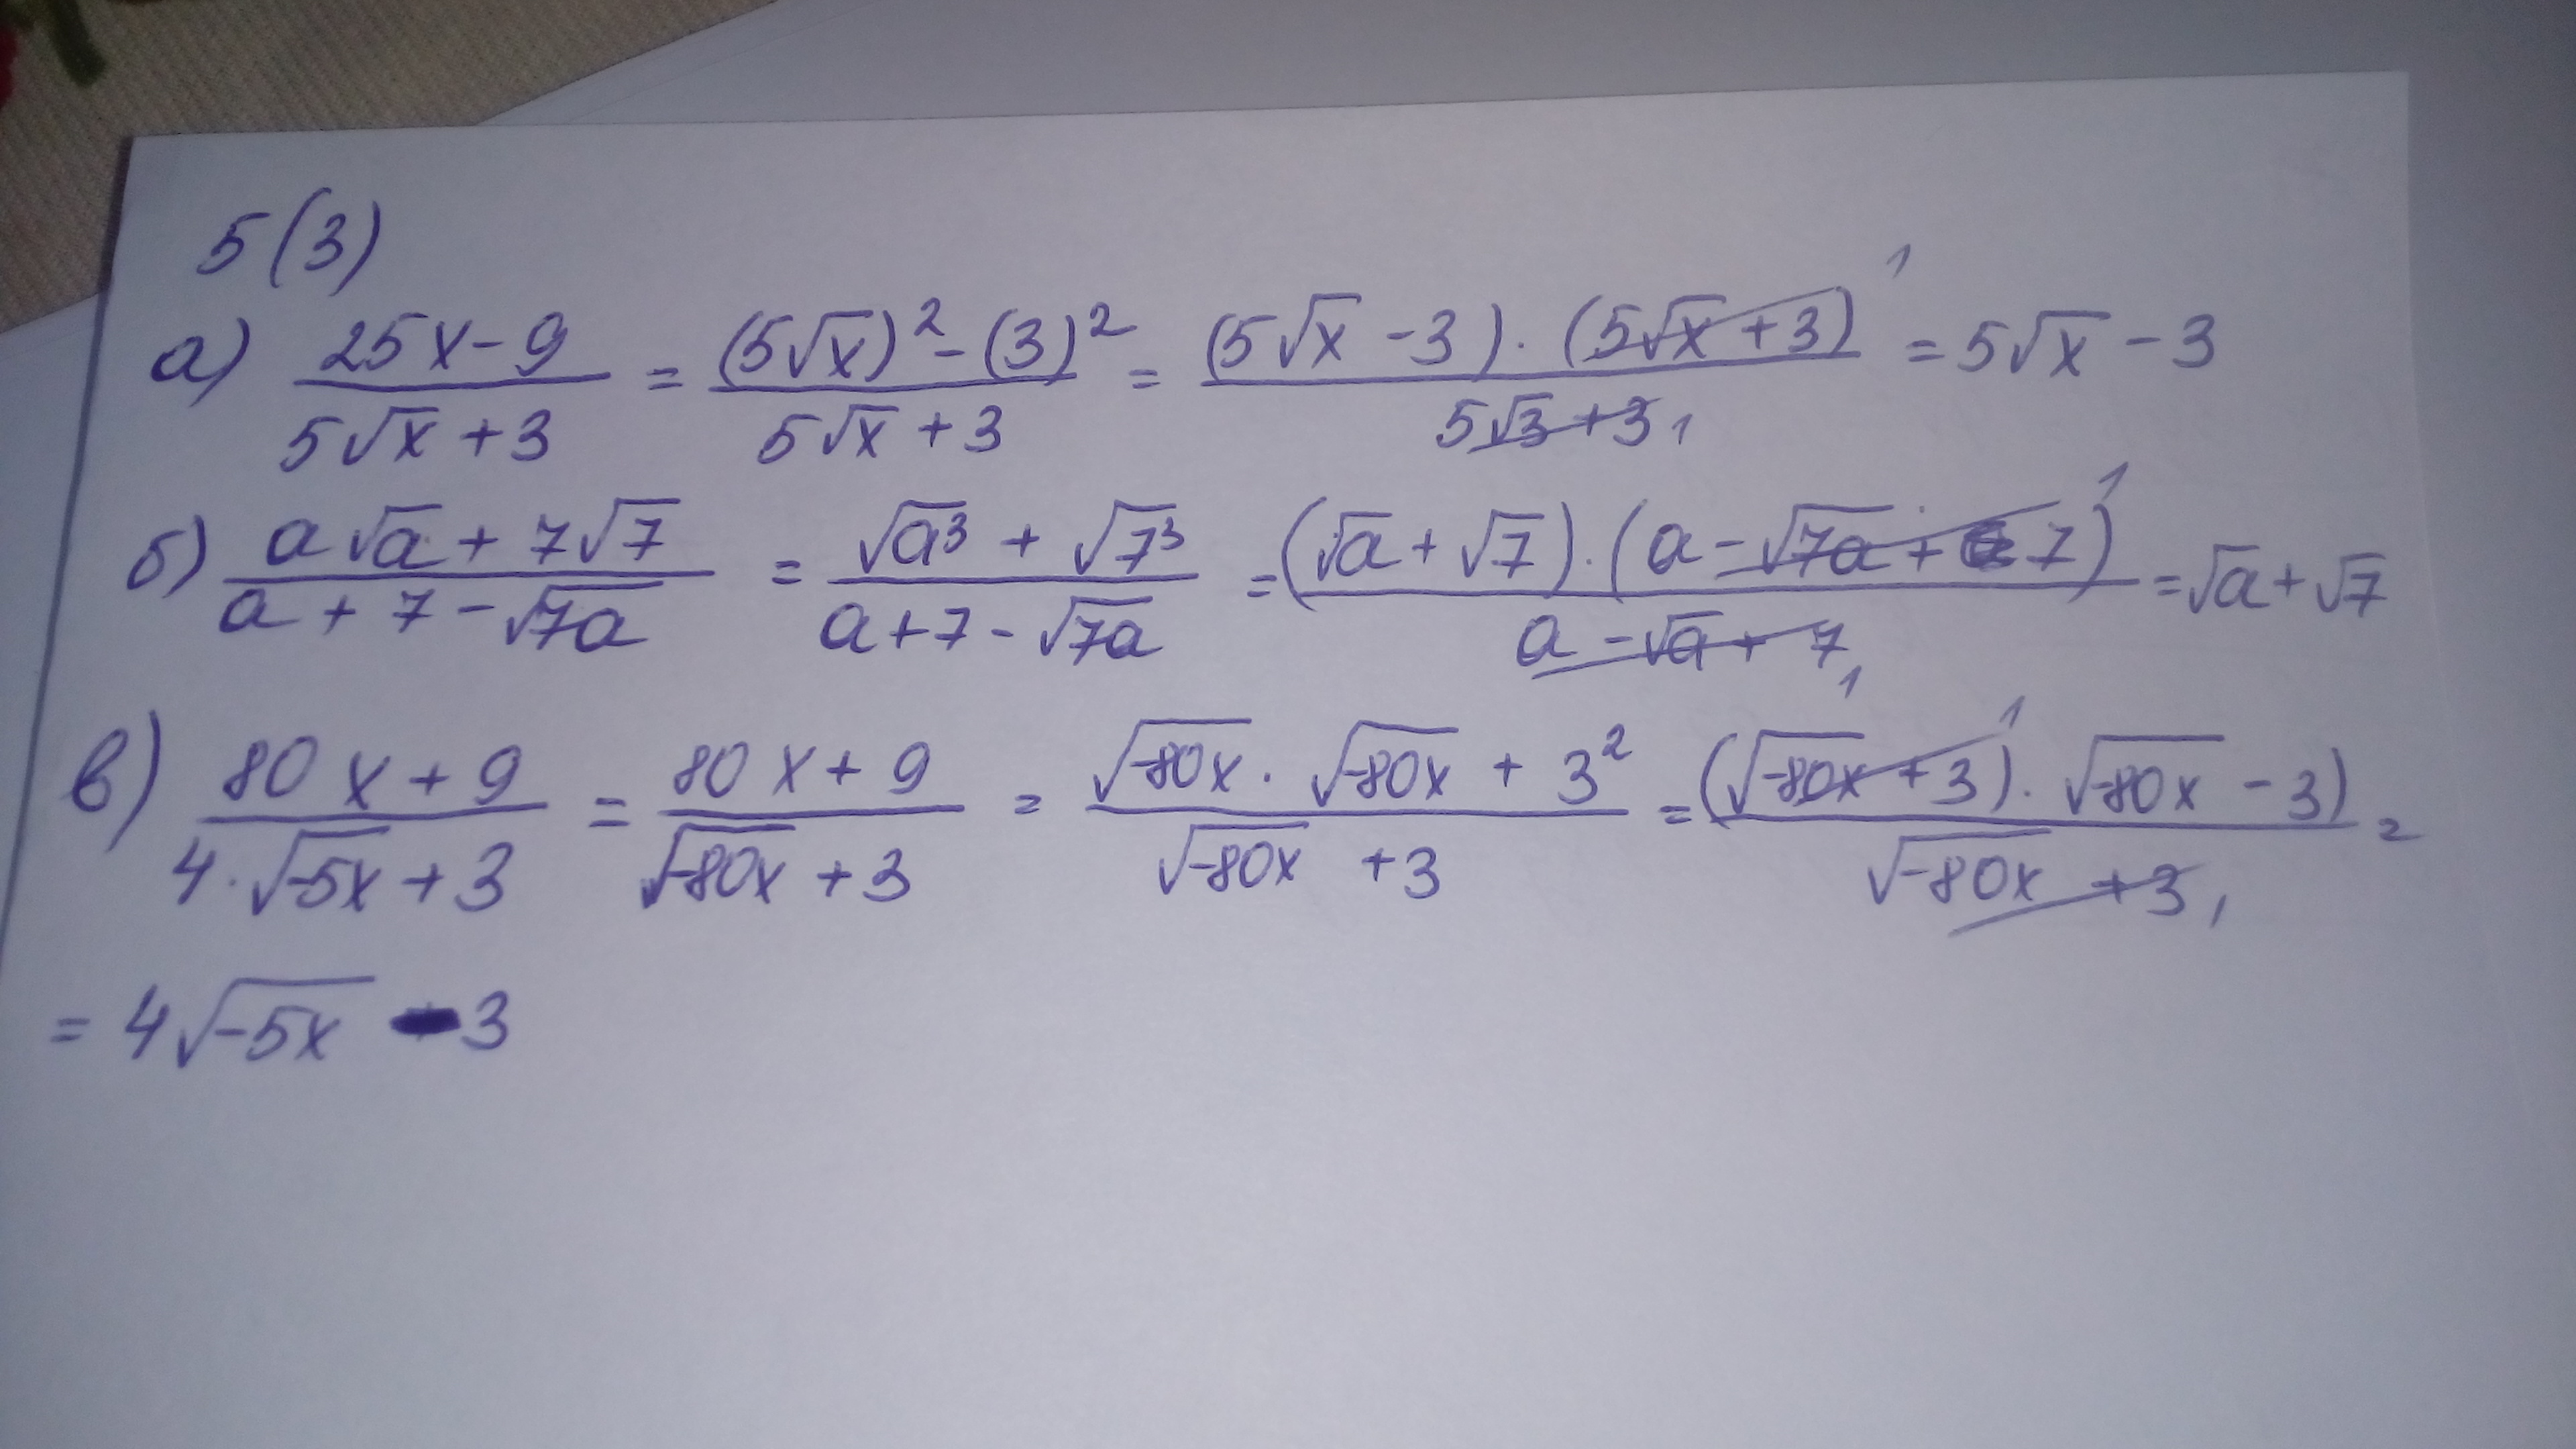 5(3)
а) (25x-9)/(5√x+3) = ((5√x)²-(3)²)/(5√x+3) = ((5√x-3)·(5√x+3)¹)/(5√3+3 1) = 5√x-3
б) (a√a+7√7)/(a+7-√7a) = (√a³+√7³)/(a+7-√7a) = ((√a+√7)·(a-√7a+7)¹)/(a-√a+7 1) = √a+√7
в) (80x+9)/(4·√-5x+3) = (80x+9)/(√-80x+3) = (√-80x·√-80x+3²)/(√-80x+3) = ((√-80x+3)¹·√-80x-3)/(√-80x+3 1) =
= 4√-5x - 3